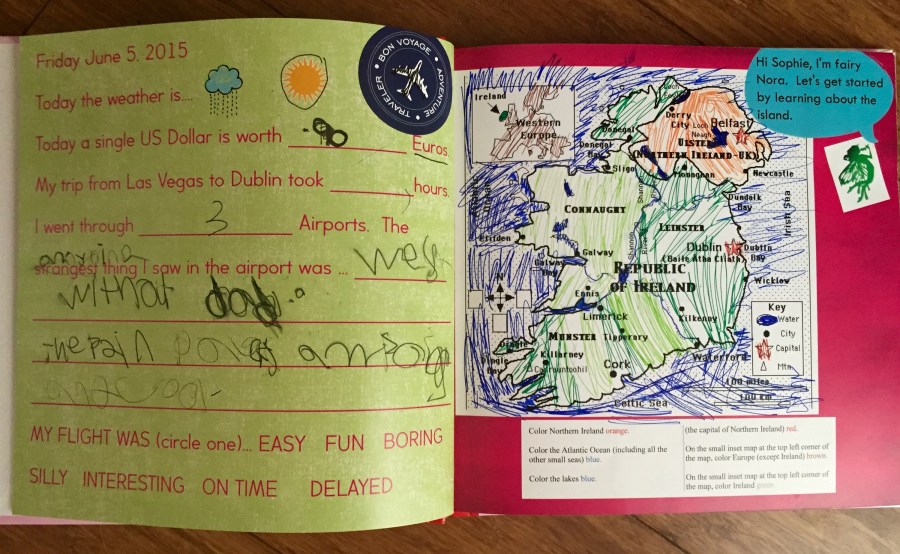 Friday June 5. 2015
BON VOYAGE • ADVENTURE • TRAVELER •
Today the weather is....
Today a single US Dollar is worth .90 Euros.
My trip from Las Vegas to Dublin took hours.
I went through 3 Airports. The
annoying
strangest thing I saw in the airport was ...
without
MY FLIGHT WAS (circle one)... EASY FUN BORING
SILLY INTERESTING ON TIME DELAYED
Hi Sophie, I'm fairy
Nora. Let's get started
by learning about the
island.
Ireland
Western
Europe
Derry
City
Lough
Neagh
Belfast
ULSTER
(NORTHERN IRELAND-UK)
Donegal
Donegal
Bay
Sligo
Monaghan
Newcastle
Dundalk
Bay
Irish Sea
CONNAUGHT
Shannon
LEINSTER
Clifden
Galway
Galway
Bay
Dublin
(Baile Atha Cliath)
Dublin
Bay
REPUBLIC
OF IRELAND
Wicklow
N
Ennis
Limerick
Kilkenny
MUNSTER
Tipperary
Dingle
Dingle
Bay
Killarney
Carrauntoohil
Cork
Waterford
Celtic Sea
Key
Water
City
Capital
Mtn
100 miles
100 km
Color Northern Ireland orange.
Color the Atlantic Ocean (including all the
other small seas) blue.
Color the lakes blue.
(the capital of Northern Ireland) red.
On the small inset map at the top left corner of
the map, color Europe (except Ireland) brown.
On the small inset map at the top left corner of
the map, color Ireland green.